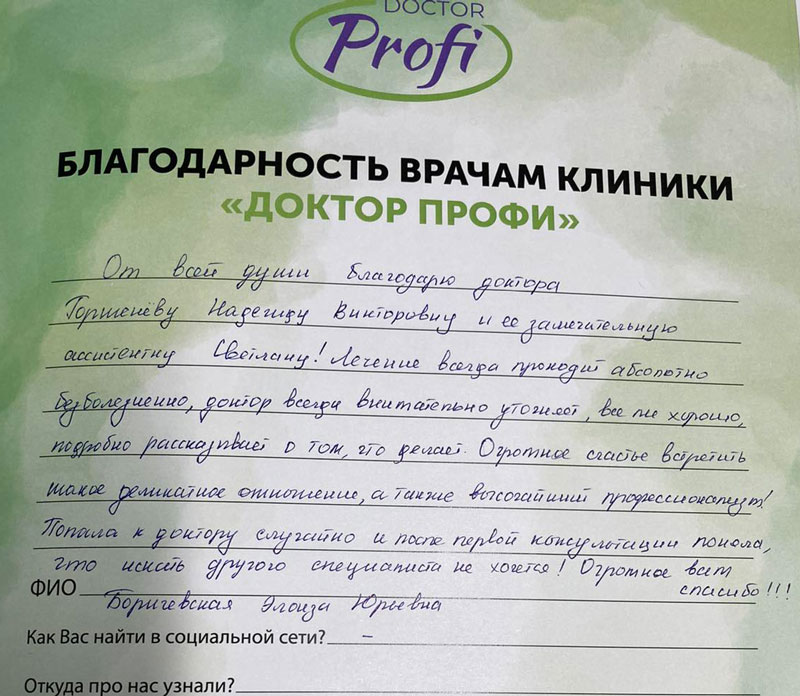 DOCTOR
Profi
БЛАГОДАРНОСТЬ ВРАЧАМ КЛИНИКИ
«ДОКТОР ПРОФИ»
От всей души благодарю доктора
Горшенёву Надежду Викторовну и ее замечательную
ассистентку Светлану! Лечение всегда проходит абсолютно
безболезненно, доктор всегда внимательно уточняет, все ли хорошо,
подробно рассказывает о том, что делает. Огромное счастье встретить
такое деликатное отношение, а также высочайший профессионализм!
Попала к доктору случайно и после первой консультации поняла,
что искать другого специалиста не хочется! Огромное вам
спасибо!!!
ФИО Боричевская Элоиза Юрьевна
Как Вас найти в социальной сети? –
Откуда про нас узнали?